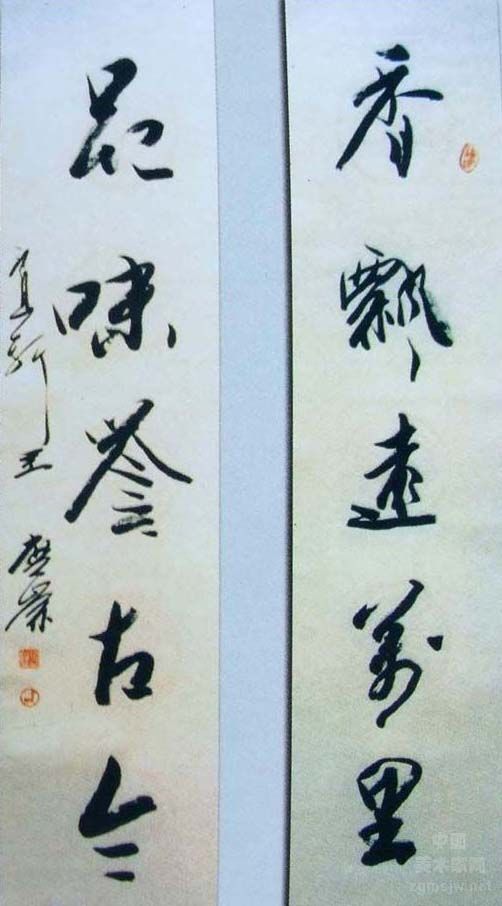 香飄遠萬里
品味誉古今
王
中国
美术家网
zgmsjw.net